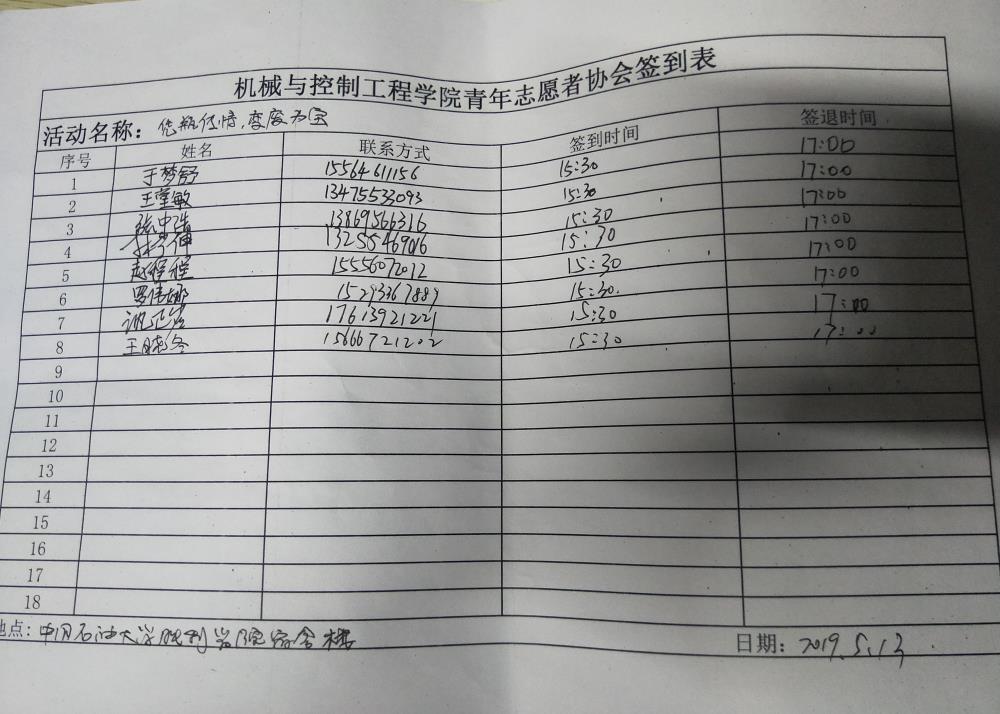 机械与控制工程学院青年志愿者协会签到表
活动名称：传瓶传情，变废为宝
序号 姓名 联系方式 签到时间 签退时间
1 于梦舒 15564611156 15:30 17:00
2 王莹敏 13475533093 15:30 17:00
3 13869566316 15:30 17:00
4 13255469016 15:30 17:00
5 赵程程 15556072012 15:30 17:00
6 15293367889 15:30 17:00
7 17613921221 15:30 17:00
8 王晓冬 15666721202 15:30 17:00
9
10
11
12
13
14
15
16
17
18
地点：中国石油大学胜利学院宿舍楼 日期：2019.5.13